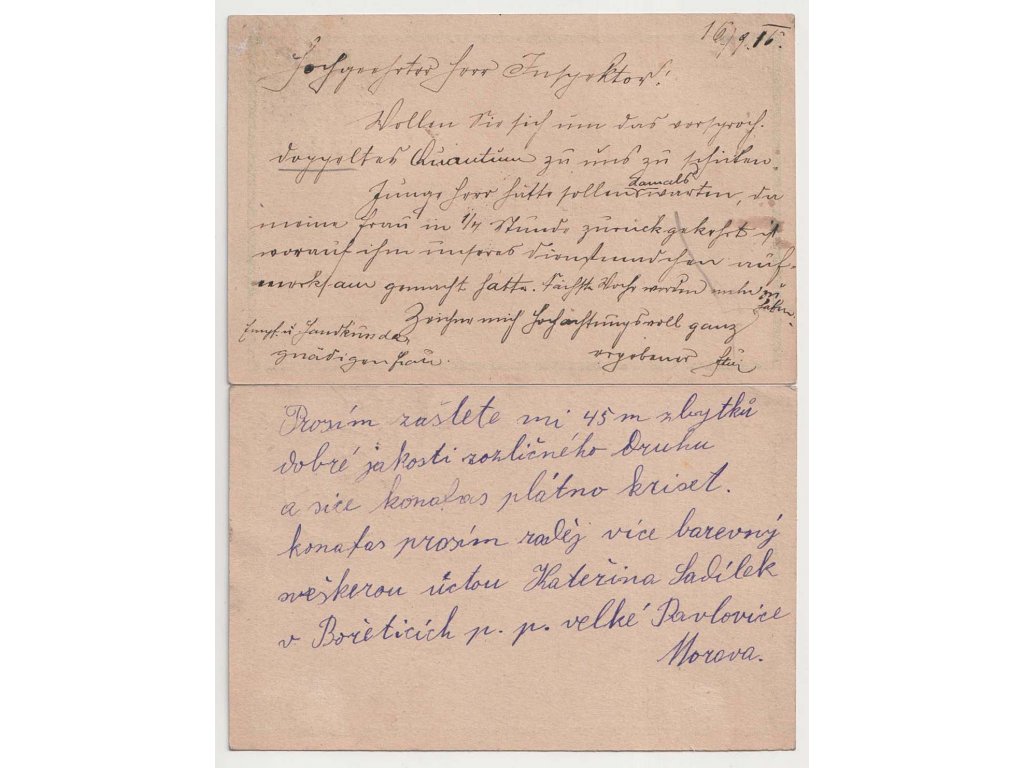 16/9. 15.
Hochgeehrter Herr Inspektor!
Wollen Sie sich um das versproch.
doppeltes Quantum zu uns zu schicken.
Junge Herr hätte sollen damals warten, da
meine Frau in 1/4 Stunde zurückgekehrt ist
worauf ihm unseres Dienstmädchen auf-
merksam gemacht hatte. Nächste Woche werden mehr zu
haben.
Zeichne mich hochachtungsvoll ganz
ergebener
Empf. u. Handkuss der
gnädigen Frau.
Prosím zašlete mi 45 m zbytků
dobré jakosti rozličného Druhu
a sice konafas plátno kriset.
konafas prosím raděj více barevný
sveškerou úctou Kateřina Sadílek
v Bořeticích p. p. velké Pavlovice
Morava.